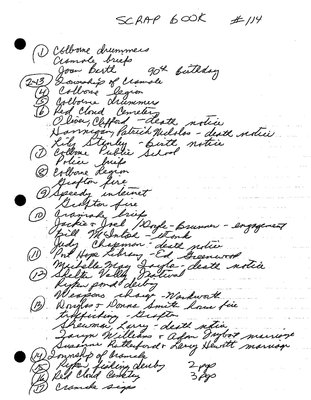 SCRAP BOOK #114
① Colborne drummers
Cramahe briefs
Joan Berth 90th birthday
(2-3) Township of Cramahe
④ Colborne legion
⑤ Colborne drummer
⑥ Red Cloud Cemetery
Oliver, Clifford - death notice
Hannigan, Patrick Nicholas - death notice
Lily Stanley - birth notice
⑦ Colborne Public School
Police brief
⑧ Colborne Legion
Grafton fire
⑨ Speedy internet
Grafton fire
⑩ Cramahe brief
Jackie & Joel Doyle - Brunan - engagement
Bill McIntosh - stamps
Judy Chapman - death notice
⑪ Port Hope Library - Ed Greenwood
Michelle May - death notice
⑫ Shelter Valley Festival
Kypa pond derby
Weapons charge - Warkworth
⑬ Douglas & Donna Smith house fire
trafficking - Grafton
Sherman, Larry - death notice
Taryn Williams & Adam marriage
Suzanne Rutherford & Larry Hewitt marriage
⑭ Township of Cramahe
⑮ fishing derby 2 pgs
⑯ Red Cloud Cemetery 3 pgs
⑰ Cramahe signs